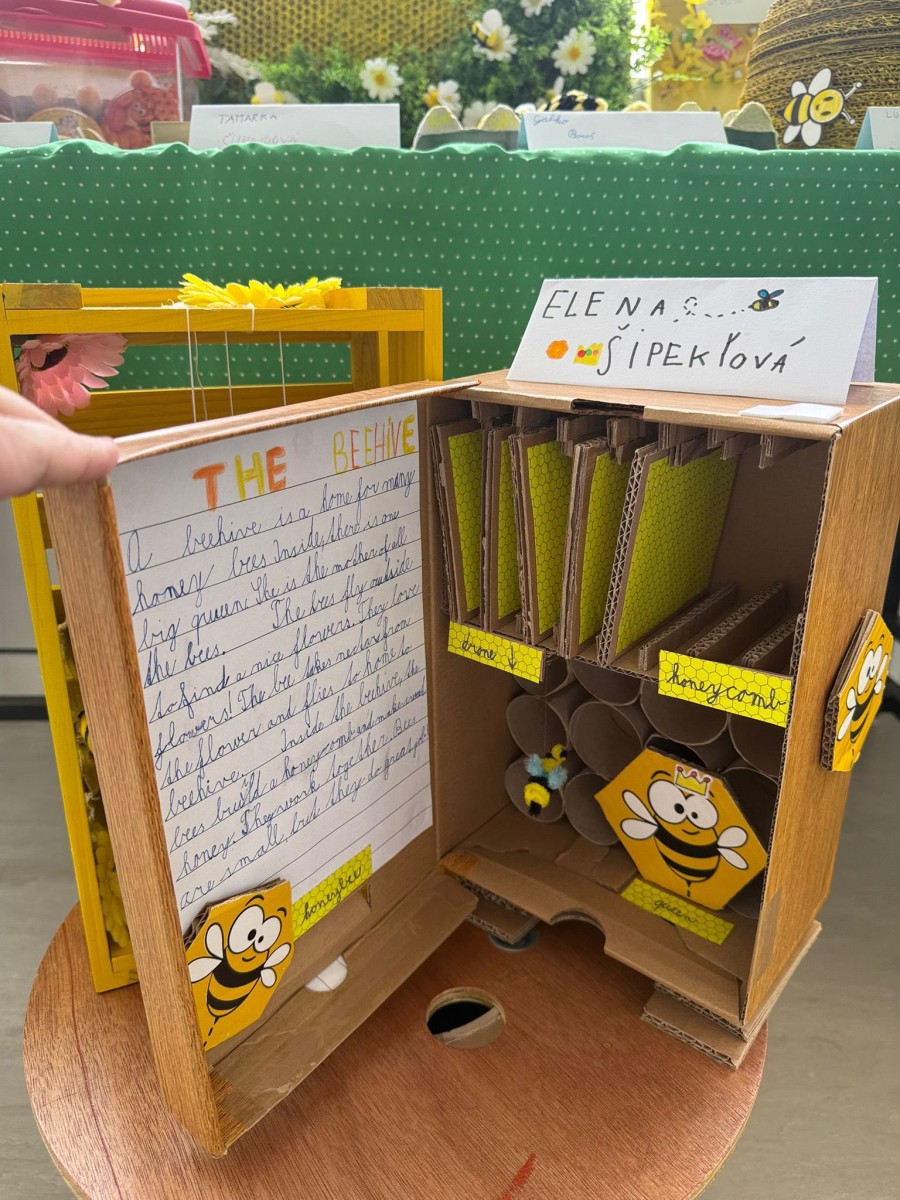 TAMARKA
ELENA
ŠIPEKĽOVÁ
THE BEEHIVE
A beehive is a home for many
honey bees. Inside, there is one
big queen. She is the mother of all
the bees. The bees fly outside
to find a nice flowers. They love
flowers! The bee takes nectar from
the flower and flies to home to
beehive. Inside the beehive, the
bees build a honeycomb and make
honey. They work together. Bees
are small, but they do great job.
honeybee
drone ↓
honeycomb
queen